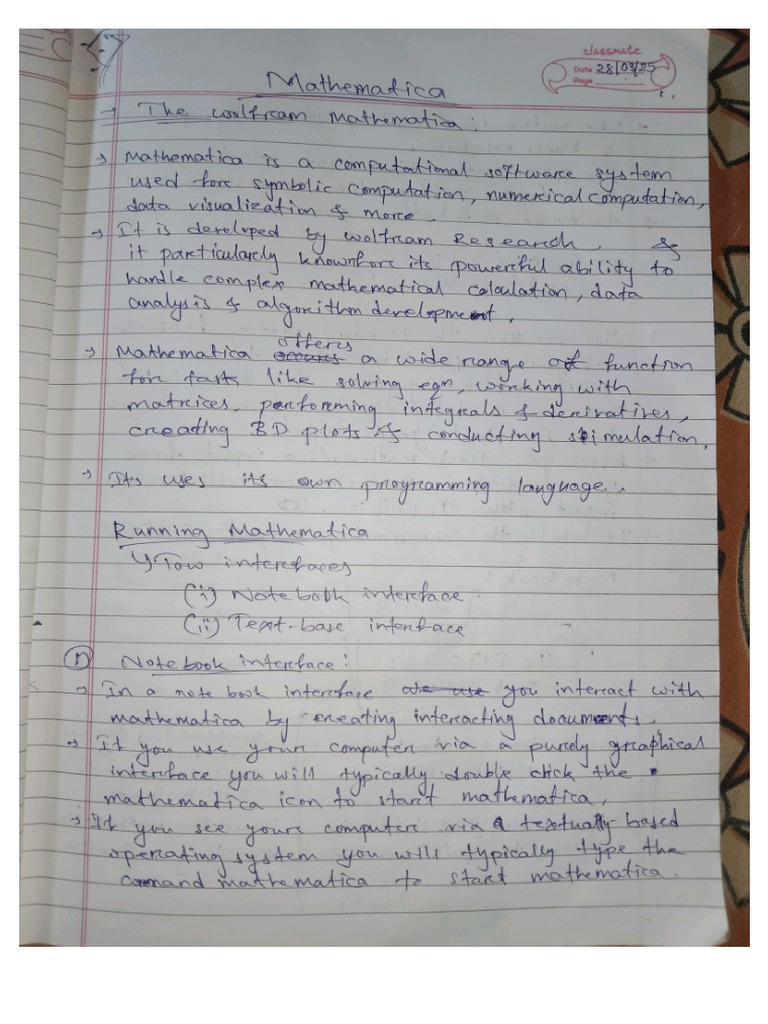 classmate
Date 28/03/25
Page
Mathematica
→ The Wolfram Mathematica:
→ Mathematica is a computational software system
used for symbolic computation, numerical computation,
data visualization & more.
→ It is developed by Wolfram Research. &
it particularly known for its powerful ability to
handle complex mathematical calculation, data
analysis & algorithm development.
offers
→ Mathematica occures a wide range of function
for task like solving eqn, working with
matrices, performing integrals & derivatives,
creating 3D plots & conducting simulation.
→ Its uses its own programming language.
Running Mathematica
Tow interfaces
(i) Notebook interface
(ii) Text-base interface
Notebook interface:
→ In a note book interface we use you interact with
mathematica by creating interacting documents.
→ If you use your computer via a purely graphical
interface you will typically double click the
mathematica icon to start mathematica,
→ If you see your computer via a textually based
operating system you will typically type the
command mathematica to start mathematica.